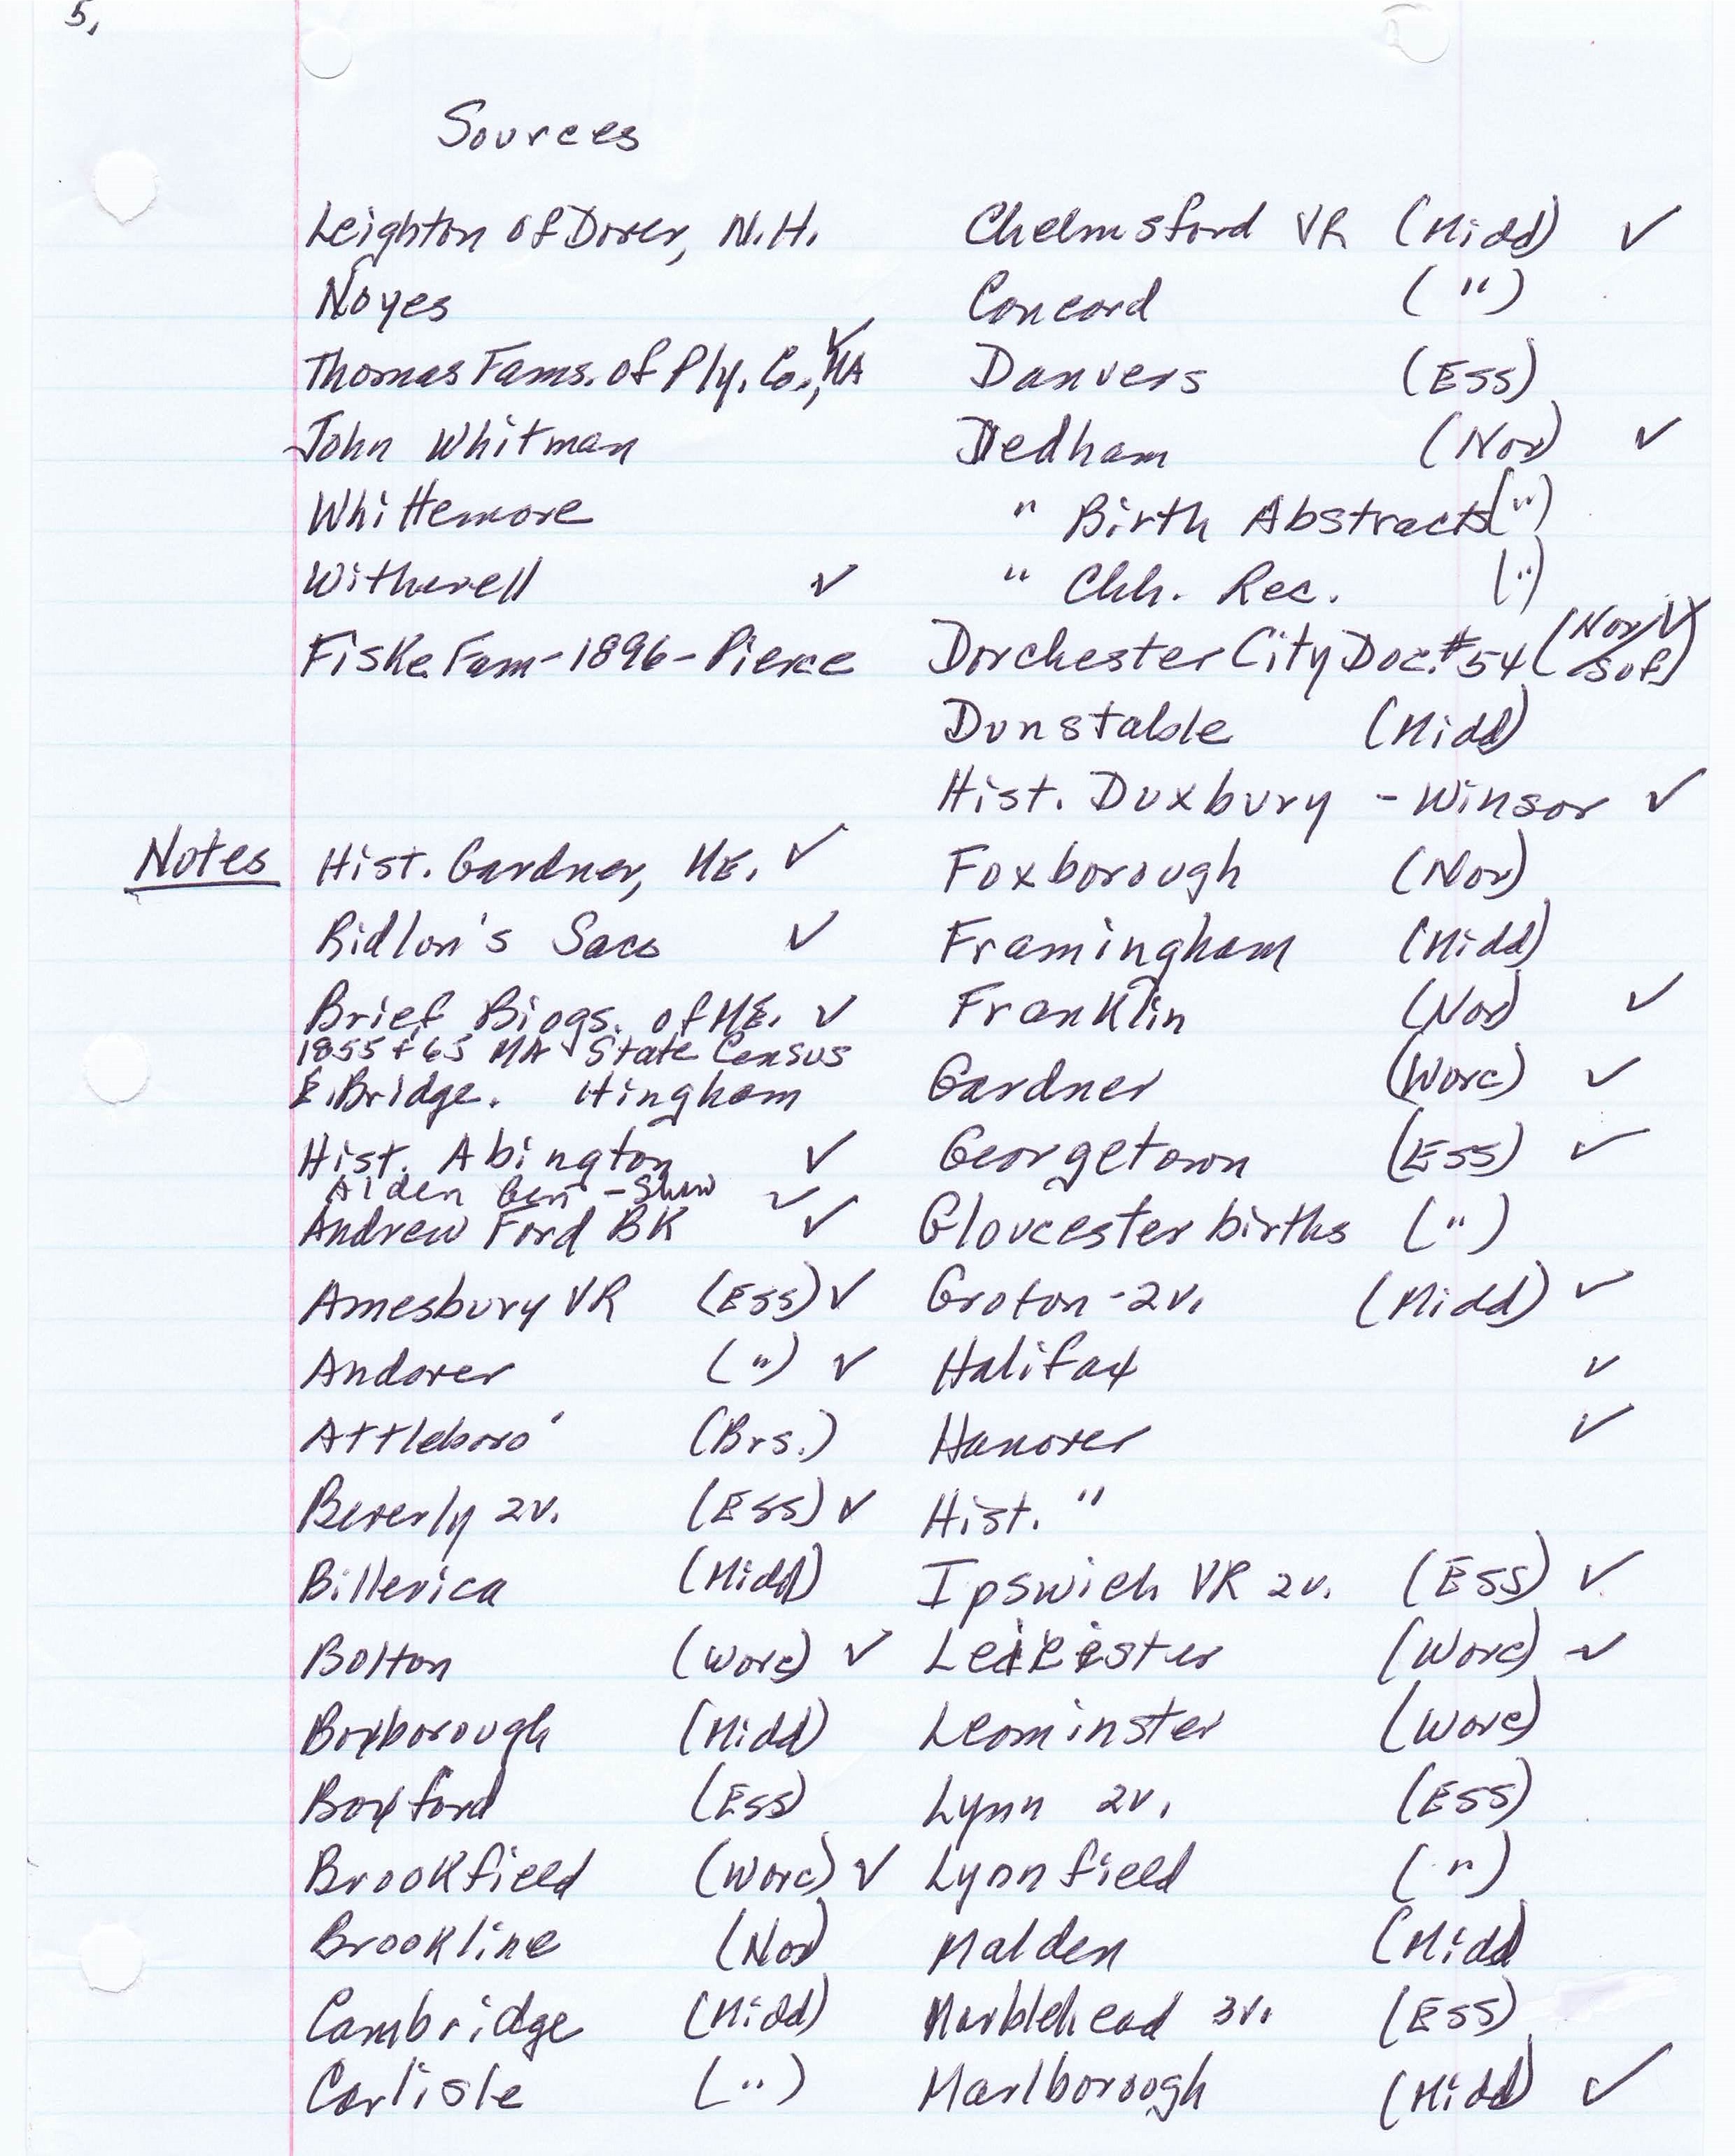 5.
Sources
Leighton of Dover, N.H.
Noyes
Thomas Fams. of Ply. Co., MA ✓
John Whitman
Whittemore
Witherell ✓
Fiske Fam - 1896 - Pierce
Notes
Hist. Gardner, ME. ✓
Ridlon's Saco ✓
Brief Biogs. of ME. ✓
1855 + 65 MA State Census
E. Bridge. Hingham
Hist. Abington ✓
Alden Gen - Shaw ✓
Andrew Ford BK ✓
Amesbury VR (Ess) ✓
Andover (") ✓
Attleboro' (Brs.)
Beverly 2v. (Ess) ✓
Billerica (Midd)
Bolton (Worc) ✓
Boxborough (Midd)
Boxford (Ess)
Brookfield (Worc) ✓
Brookline (Nor)
Cambridge (Midd)
Carlisle (")
Chelmsford VR (Midd) ✓
Concord (")
Danvers (Ess)
Dedham (Nor) ✓
" Birth Abstracts (")
" Chh. Rec. (")
Dorchester City Doc. #54 (Nor/Suf) ✓
Dunstable (Midd)
Hist. Duxbury - Winsor ✓
Foxborough (Nor)
Framingham (Midd)
Franklin (Nor) ✓
Gardner (Worc) ✓
Georgetown (Ess) ✓
Gloucester births (")
Groton - 2v. (Midd) ✓
Halifax ✓
Hanover ✓
Hist. "
Ipswich VR 2v. (Ess) ✓
Leicester (Worc) ✓
Leominster (Worc)
Lynn 2v. (Ess)
Lynnfield (")
Malden (Midd)
Marblehead 3v. (Ess)
Marlborough (Midd) ✓